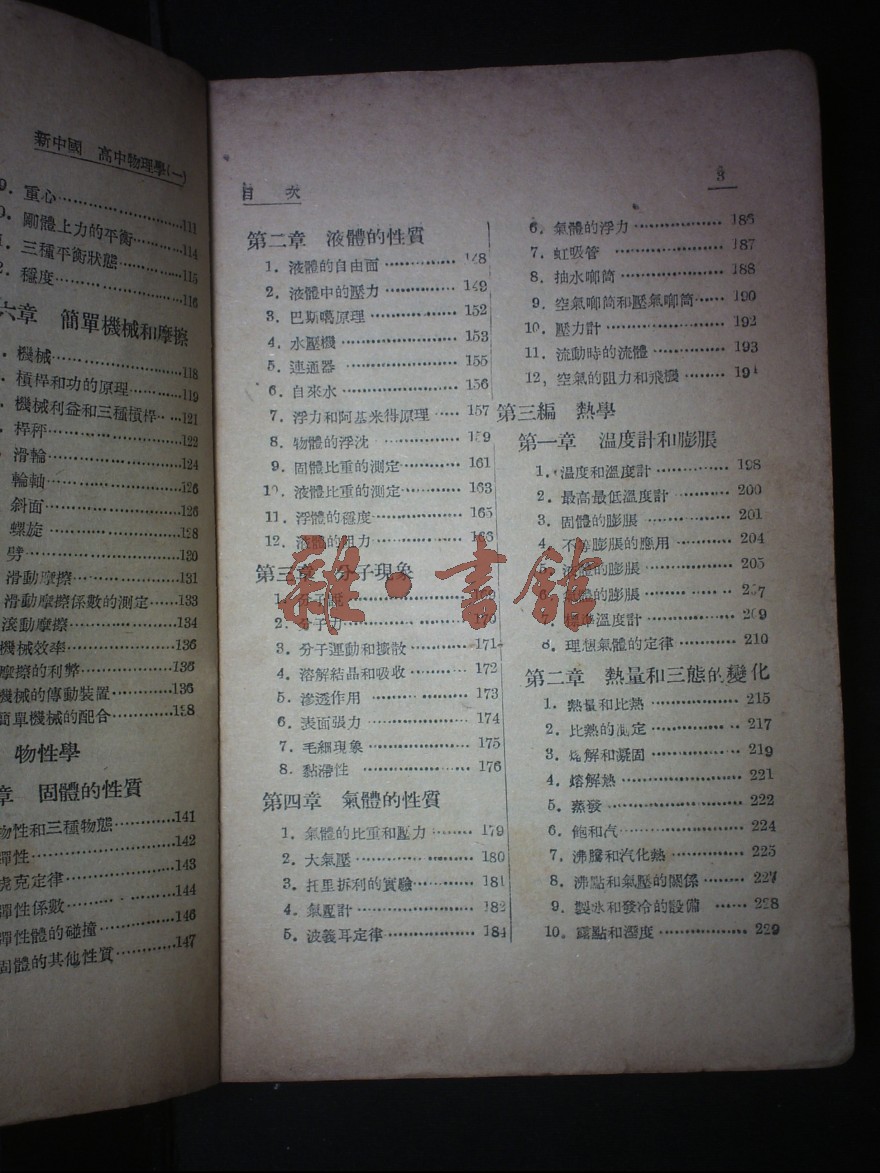 新中國 高中物理學(一)
重心 111
剛體上力的平衡 114
三種平衡狀態 115
2. 穩度 116
六章 簡單機械和摩擦
機械 118
槓桿和功的原理 119
機械利益和三種槓桿 121
桿秤 122
滑輪 124
輪軸 126
斜面 126
螺旋 128
劈 130
滑動摩擦 131
滑動摩擦係數的測定 133
滾動摩擦 134
機械效率 136
摩擦的利弊 136
機械的傳動裝置 136
簡單機械的配合 138
物性學
章 固體的性質
物性和三種物態 141
彈性 142
虎克定律 143
彈性係數 144
彈性體的碰撞 146
固體的其他性質 147
目 次
3
第二章 液體的性質
1. 液體的自由面 148
2. 液體中的壓力 149
3. 巴斯噶原理 152
4. 水壓機 153
5. 連通器 155
6. 自來水 156
7. 浮力和阿基米得原理 157
8. 物體的浮沈 159
9. 固體比重的測定 161
10. 液體比重的測定 163
11. 浮體的穩度 165
12. 液體的阻力 166
第三章 分子現象
1. 分子
2. 分子力 170
3. 分子運動和擴散 171
4. 溶解結晶和吸收 172
5. 滲透作用 173
6. 表面張力 174
7. 毛細現象 175
8. 黏滯性 176
第四章 氣體的性質
1. 氣體的比重和壓力 179
2. 大氣壓 180
3. 托里拆利的實驗 181
4. 氣壓計 182
5. 波義耳定律 184
6. 氣體的浮力 186
7. 虹吸管 187
8. 抽水唧筒 188
9. 空氣唧筒和壓氣唧筒 190
10. 壓力計 192
11. 流動時的流體 193
12. 空氣的阻力和飛機 194
第三編 熱學
第一章 温度計和膨脹
1. 温度和溫度計 198
2. 最高最低溫度計 200
3. 固體的膨脹 201
4. 不等膨脹的應用 204
5. 液體的膨脹 205
6. 氣體的膨脹 207
7. 標準溫度計 209
8. 理想氣體的定律 210
第二章 熱量和三態的變化
1. 熱量和比熱 215
2. 比熱的測定 217
3. 熔解和凝固 219
4. 熔解熱 221
5. 蒸發 222
6. 飽和汽 224
7. 沸騰和汽化熱 225
8. 沸點和氣壓的關係 227
9. 製氷和發冷的設備 228
10. 露點和溼度 229
雜·書館